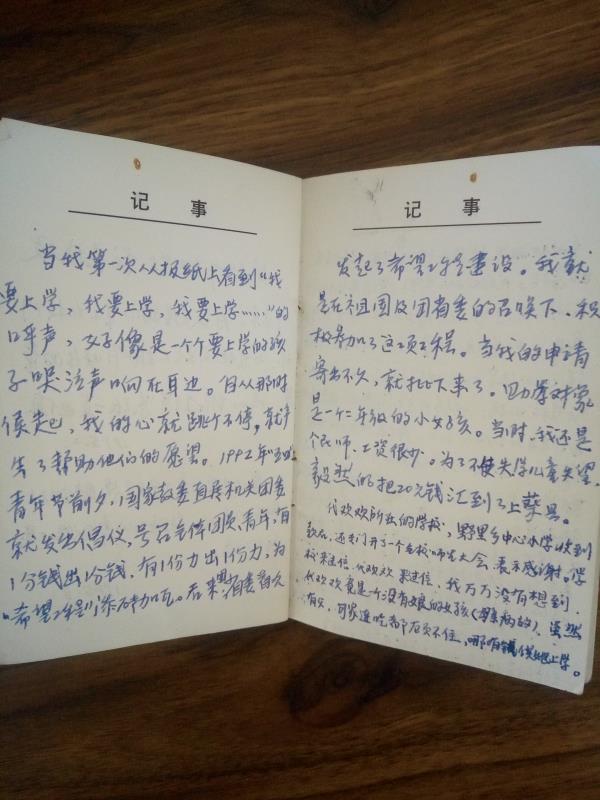 记 事
当我第一次从报纸上看到“我
要上学，我要上学，我要上学……”的
呼声，好像是一个个要上学的孩
子哭泣声响在耳边。自从那时
候起，我的心就跳个不停，就产
生了帮助他们的愿望。1992年“五四”
青年节前夕，国家教委直属机关团委
就发出倡仪，号召全体团员、青年，有
1分钱出1分钱，有1份力出1份力，为
“希望工程”添砖加瓦。后来，省委首次
记 事
发起了希望工程建设。我就
是在祖国及团省委的召唤下，积
极参加了这项工程。当我的申请
寄出不久，就批下来了。助学对象
是一个二年级的小女孩。当时，我还是
个民师，工资很少。为了不使失学儿童失望，
毅然的把20元钱汇到了上蔡县。
代欢欢所在的学校，野里乡中心小学收到
款后，还专门开了一个全校师生大会，表示感谢。学
校来过信，代欢欢来过信，我万万没有想到，
代欢欢竟是一个没有娘的女孩（母亲病故），虽然
有父，可家连吃都石负不住，哪有钱供她上学。